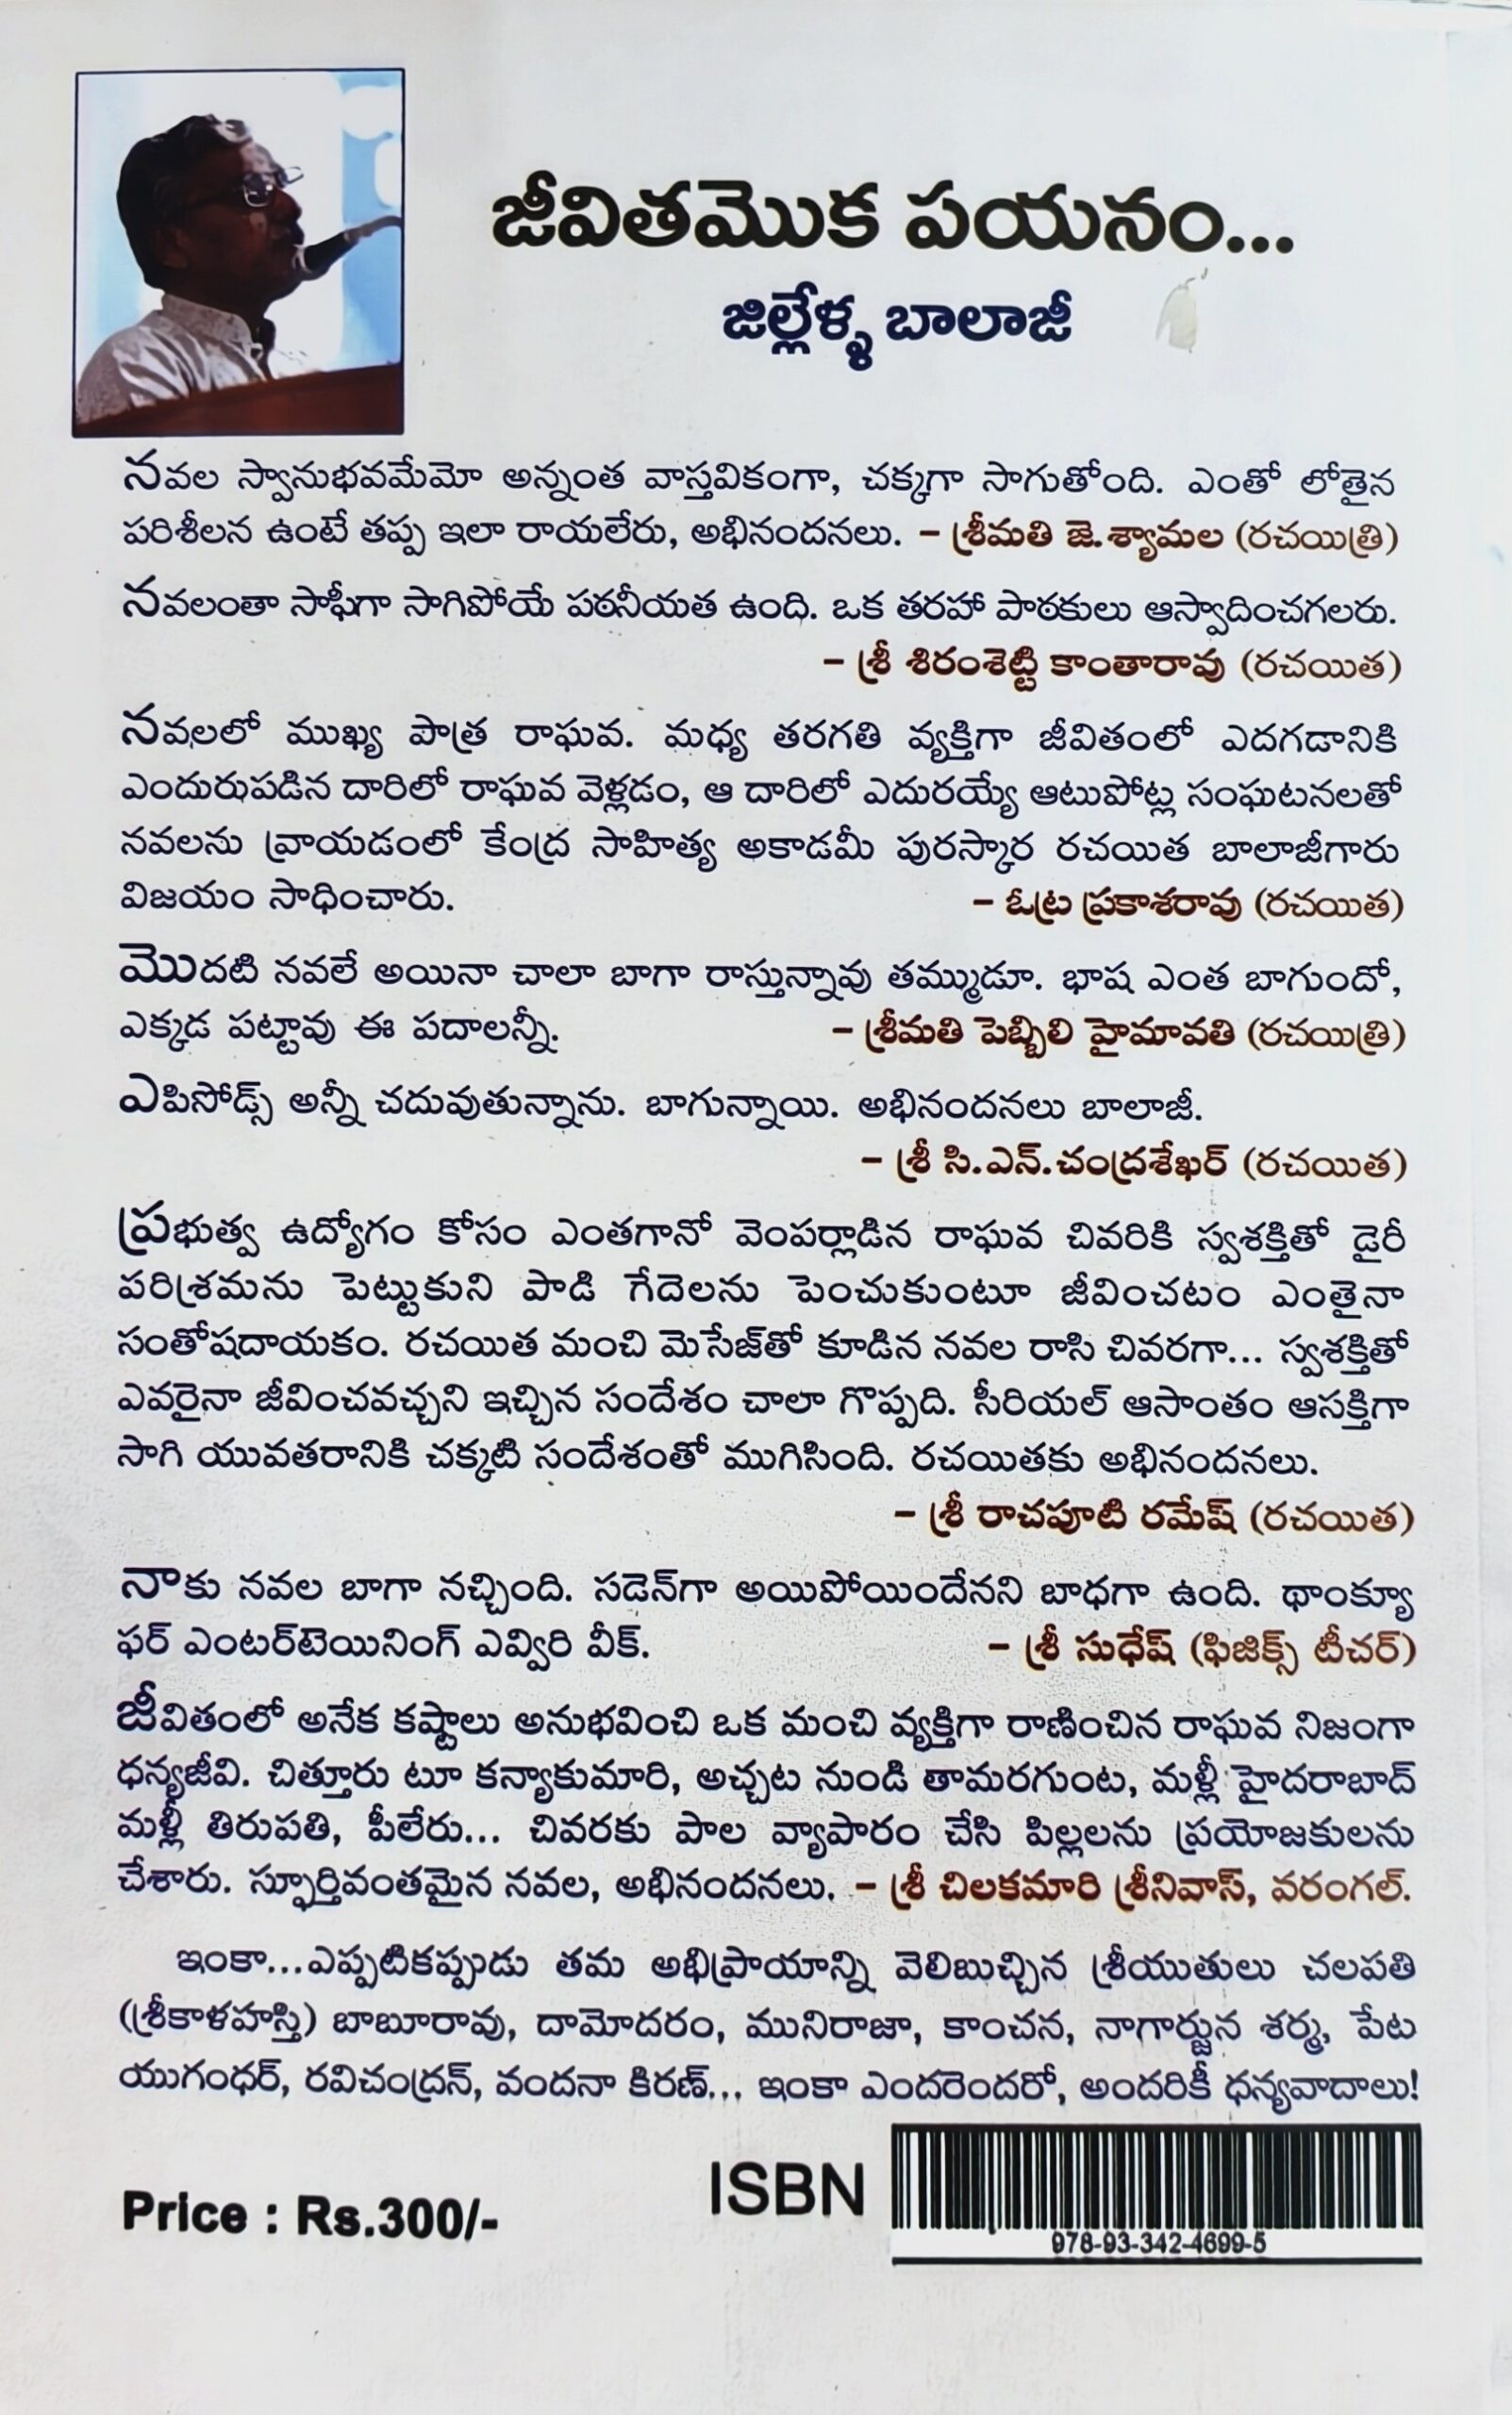 జీవితమొక పయనం...
జిల్లేళ్ళ బాలాజీ
నవల స్వానుభవమేమో అన్నంత వాస్తవికంగా, చక్కగా సాగుతోంది. ఎంతో లోతైన
పరిశీలన ఉంటే తప్ప ఇలా రాయలేరు, అభినందనలు. – శ్రీమతి జె.శ్యామల (రచయిత్రి)
నవలంతా సాఫీగా సాగిపోయే పఠనీయత ఉంది. ఒక తరహా పాఠకులు ఆస్వాదించగలరు.
– శ్రీ శిరంశెట్టి కాంతారావు (రచయిత)
నవలలో ముఖ్య పాత్ర రాఘవ. మధ్య తరగతి వ్యక్తిగా జీవితంలో ఎదగడానికి
ఎందురుపడిన దారిలో రాఘవ వెళ్లడం, ఆ దారిలో ఎదురయ్యే ఆటుపోట్ల సంఘటనలతో
నవలను వ్రాయడంలో కేంద్ర సాహిత్య అకాడమీ పురస్కార రచయిత బాలాజీగారు
విజయం సాధించారు. – ఓట్ర ప్రకాశరావు (రచయిత)
మొదటి నవలే అయినా చాలా బాగా రాస్తున్నావు తమ్ముడూ. భాష ఎంత బాగుందో,
ఎక్కడ పట్టావు ఈ పదాలన్నీ. – శ్రీమతి పెబ్బిలి హైమావతి (రచయిత్రి)
ఎపిసోడ్స్ అన్నీ చదువుతున్నాను. బాగున్నాయి. అభినందనలు బాలాజీ.
– శ్రీ సి.ఎన్.చంద్రశేఖర్ (రచయిత)
ప్రభుత్వ ఉద్యోగం కోసం ఎంతగానో వెంపర్లాడిన రాఘవ చివరికి స్వశక్తితో డైరీ
పరిశ్రమను పెట్టుకుని పాడి గేదెలను పెంచుకుంటూ జీవించటం ఎంతైనా
సంతోషదాయకం. రచయిత మంచి మెసేజ్‌తో కూడిన నవల రాసి చివరగా... స్వశక్తితో
ఎవరైనా జీవించవచ్చని ఇచ్చిన సందేశం చాలా గొప్పది. సీరియల్ ఆసాంతం ఆసక్తిగా
సాగి యువతరానికి చక్కటి సందేశంతో ముగిసింది. రచయితకు అభినందనలు.
– శ్రీ రాచపూటి రమేష్ (రచయిత)
నాకు నవల బాగా నచ్చింది. సడెన్‌గా అయిపోయిందేనని బాధగా ఉంది. థాంక్యూ
ఫర్ ఎంటర్‌టెయినింగ్ ఎవ్విరి వీక్. – శ్రీ సుధేష్ (ఫిజిక్స్ టీచర్)
జీవితంలో అనేక కష్టాలు అనుభవించి ఒక మంచి వ్యక్తిగా రాణించిన రాఘవ నిజంగా
ధన్యజీవి. చిత్తూరు టూ కన్యాకుమారి, అచ్చట నుండి తామరగుంట, మళ్లీ హైదరాబాద్
మళ్లీ తిరుపతి, పీలేరు... చివరకు పాల వ్యాపారం చేసి పిల్లలను ప్రయోజకులను
చేశారు. స్ఫూర్తివంతమైన నవల, అభినందనలు. – శ్రీ చిలకమారి శ్రీనివాస్, వరంగల్.
ఇంకా...ఎప్పటికప్పుడు తమ అభిప్రాయాన్ని వెలిబుచ్చిన శ్రీయుతులు చలపతి
(శ్రీకాళహస్తి) బాబూరావు, దామోదరం, మునిరాజా, కాంచన, నాగార్జున శర్మ, పేట
యుగంధర్, రవిచంద్రన్, వందనా కిరణ్... ఇంకా ఎందరెందరో, అందరికీ ధన్యవాదాలు!
Price : Rs.300/-
ISBN
978-93-342-4699-5